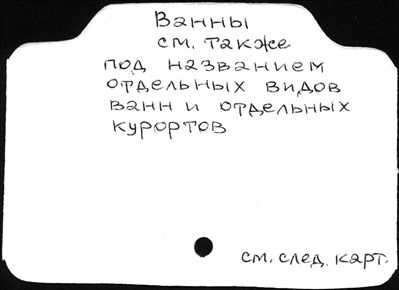 Ванны
см. также
под названием
отдельных видов
ванн и отдельных
курортов
см. след. карт.